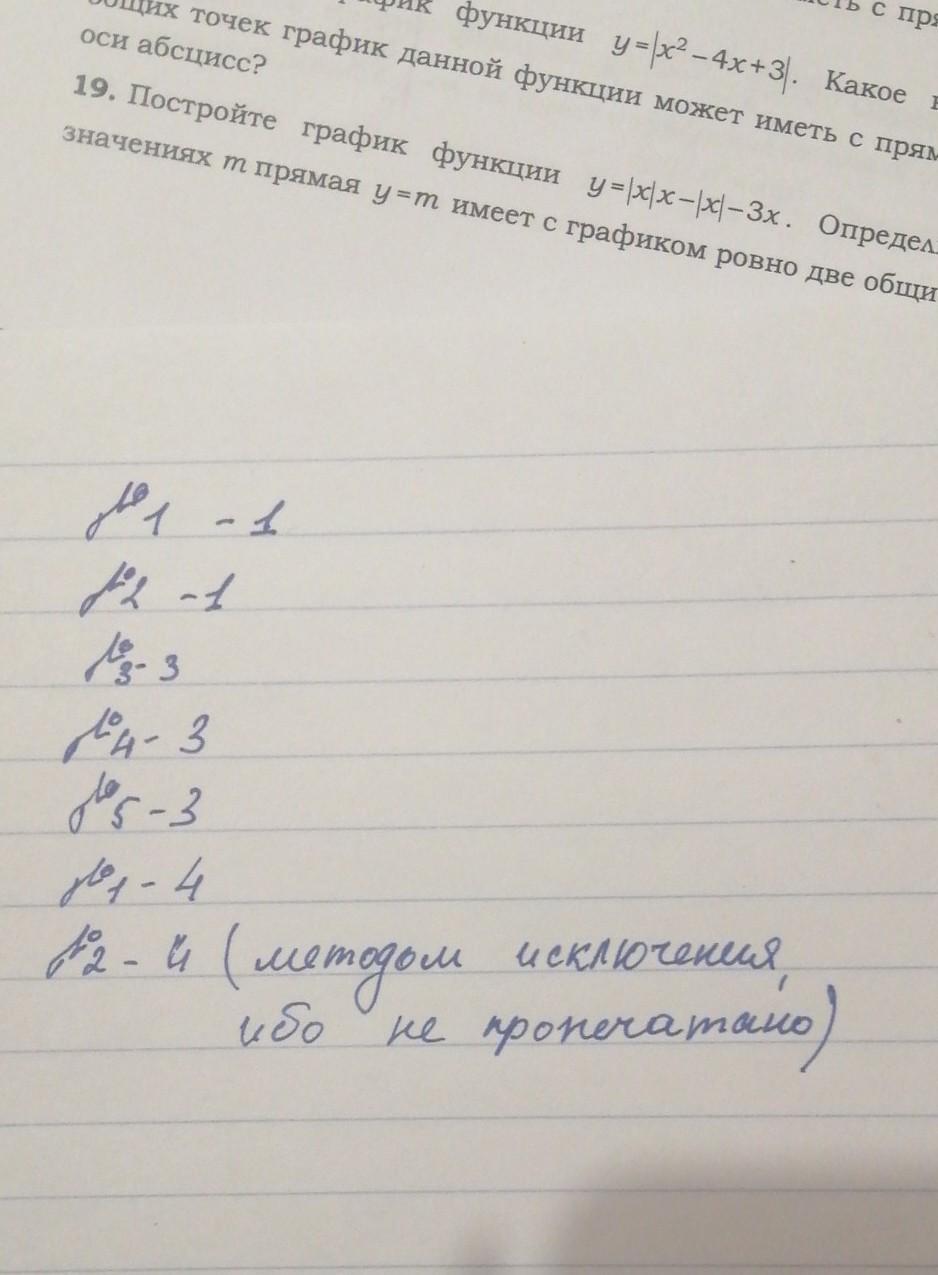 функции y=|x²−4x+3|. Какое
общих точек график данной функции может иметь с
оси абсцисс?
19. Постройте график функции y=|x|x−|x|−3x.
значениях m прямая y=m имеет с графиком ровно две
№1 - 1
№2 - 1
№3 - 3
№4 - 3
№5 - 3
№1 - 4
№2 - 4 (методом исключения,
ибо не пропечатано)